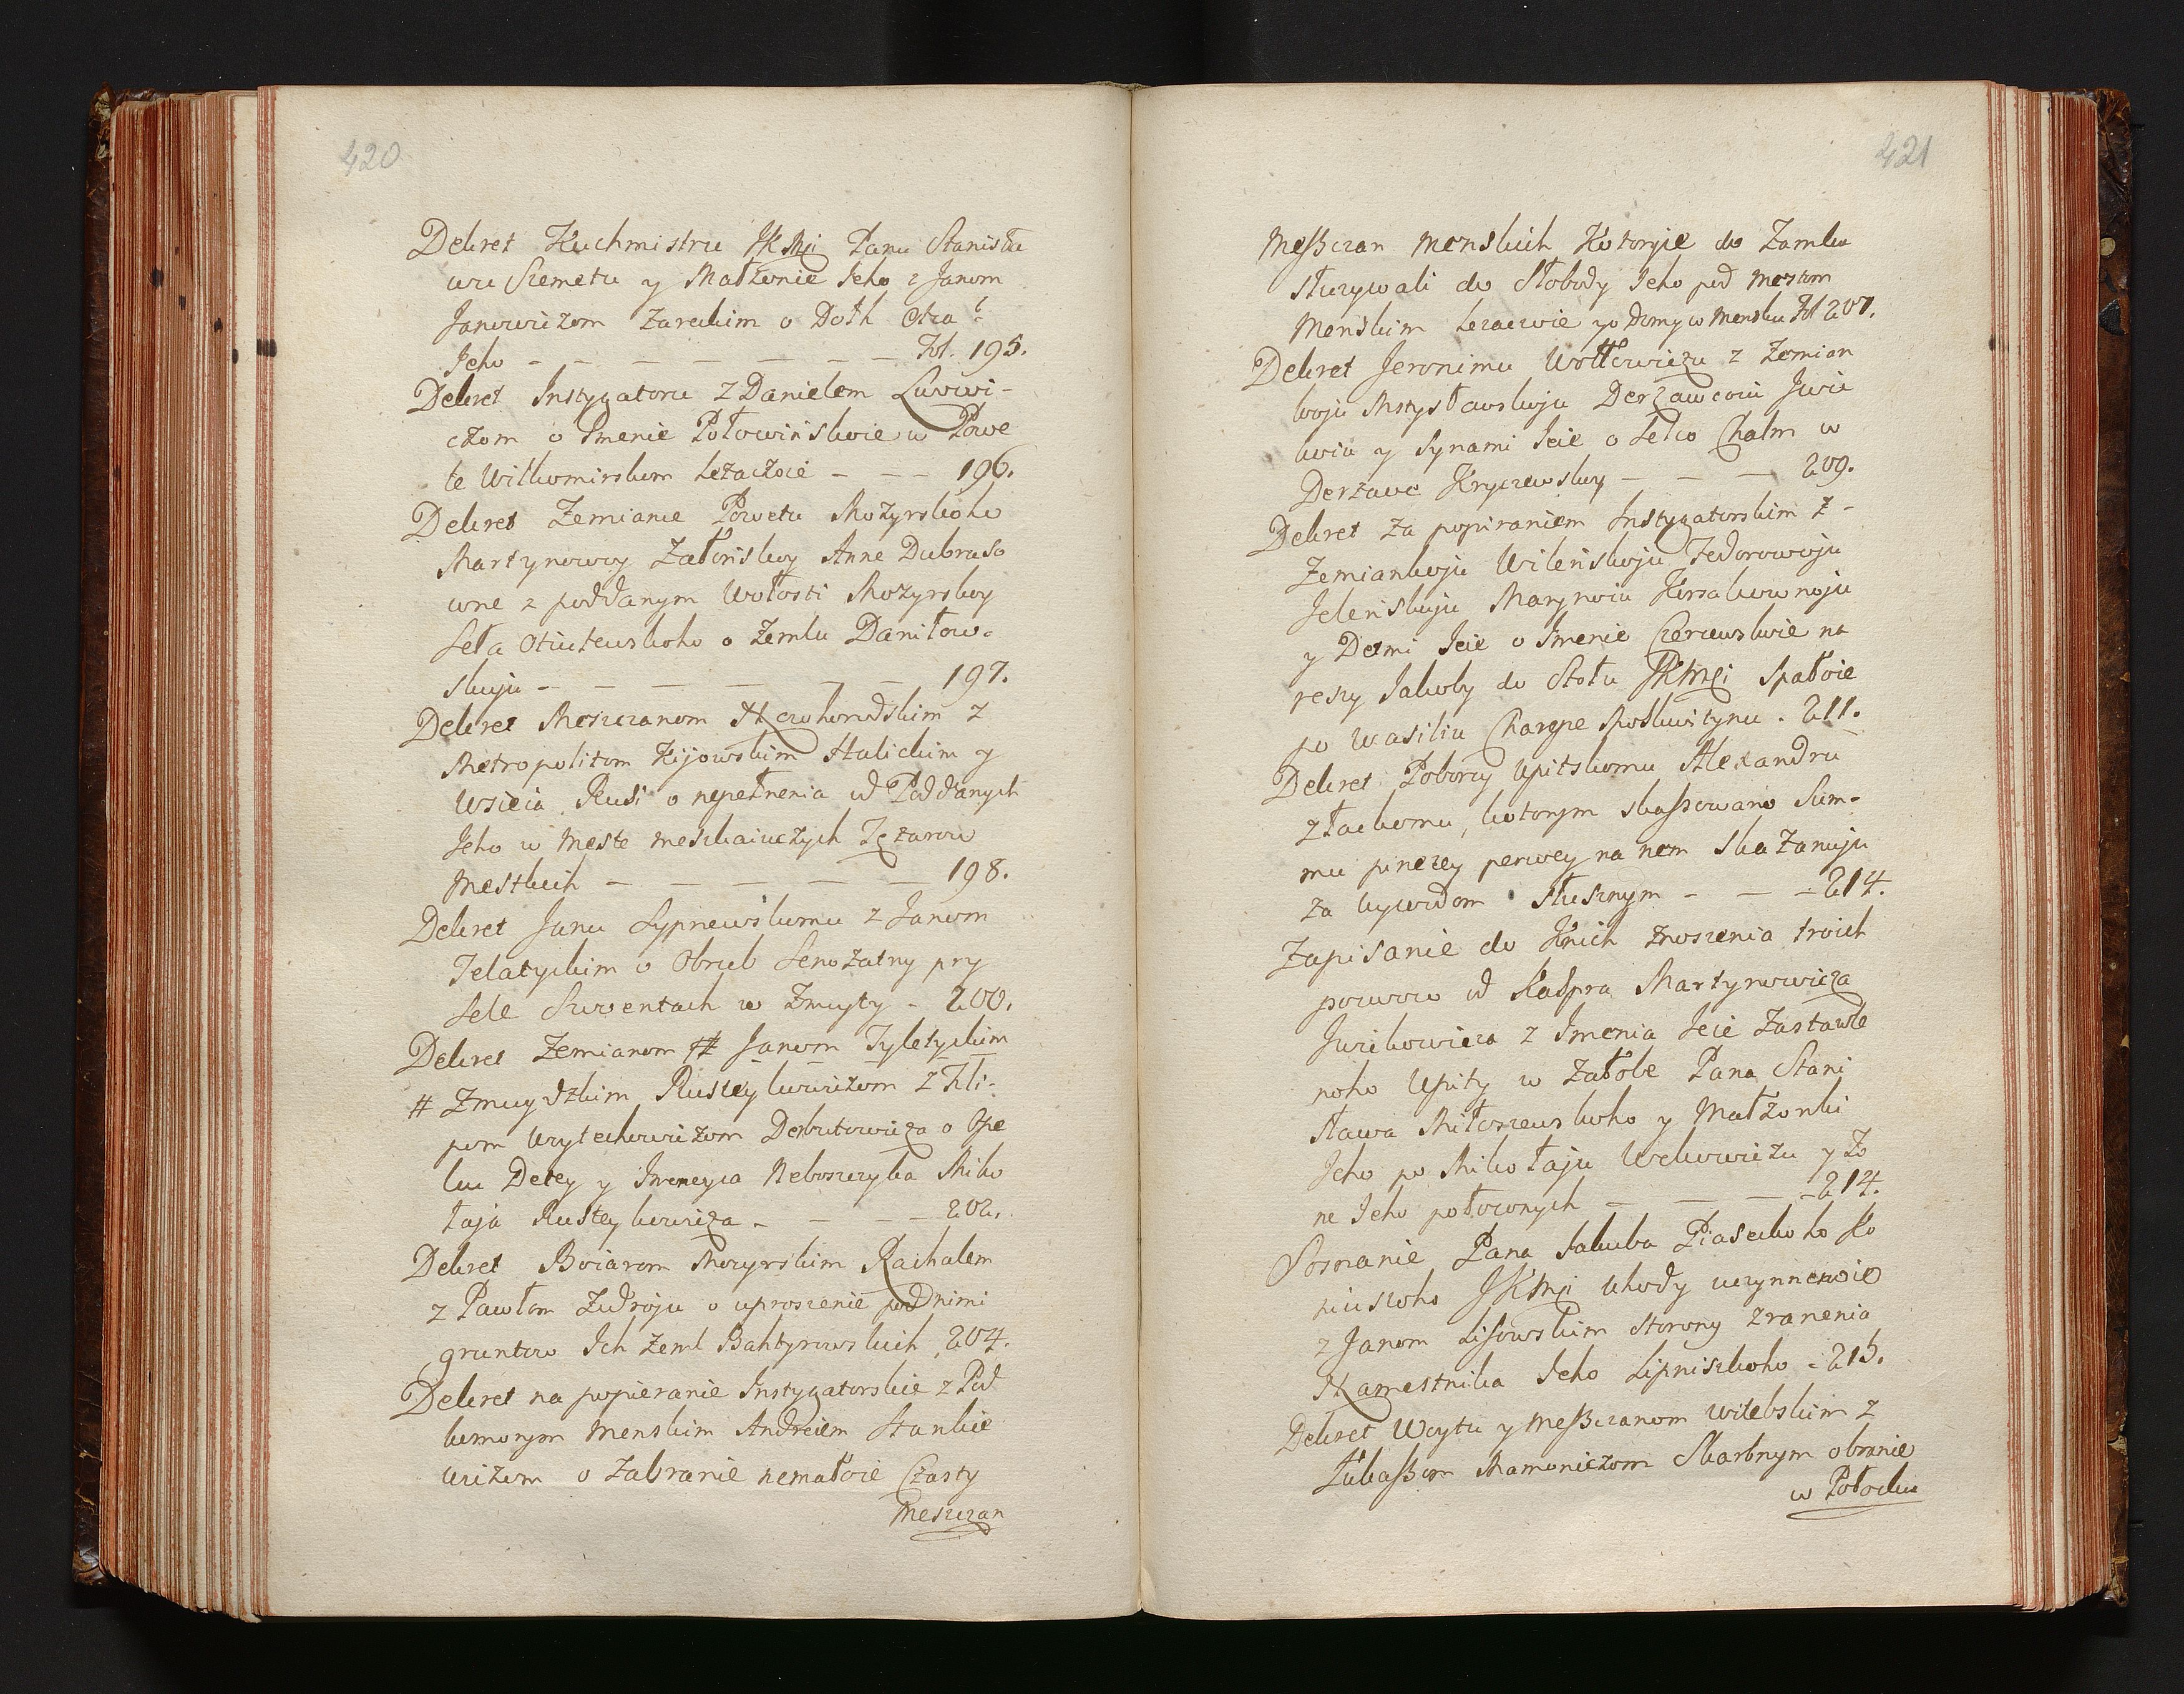 420
Dekret Kuchmistru JKMci Panu Stanisła
wu Szemetu y Małżonie Jeho z Janom
Janowiczom Zareckim o Dołh Otca
Jeho — — — — — — — Fol. 195.
Dekret Instygatoru z Danielem Lwowi-
czom o Imenie Połowińskoie w Powe
te Wilkomirskom Leżaczoie — — — 196.
Dekret Zemianie Powetu Mozyrskoho
Martynowoy Załonskoy Anne Dubraso
wne z poddanym Wołosti Mozyrskoy
Seła Otiutewskoho o Zemlu Daniłow-
skuju — — — — — — 197.
Dekret Meszczanom Nowhorodskim z
Metropolitom Kijowskim Halickim y
Wsieia Rusi o nepełnenia od Poddanych
Jeho w Meste meszkaiuczych Tężarow
Mestkich — — — — — 198.
Dekret Janu Lypnewskomu z Janom
Telatyckim o Obrub Senożatny pry
Sele Surwentach w Żmuyty - 200.
Dekret Zemianom # Janom Tyletyckim
# Żmuydzkim Rusteykowiczom z Fili-
pom Woytechowiczom Derbutowicza o Ope
ku Detey y Imeneyca Neboszczyka Miko
łaja Rusteykowicza - — — — 202.
Dekret Boiarom Mozyrskim Rachalem
z Pawłom Zudroju o uproszenie pod nimi
gruntow Ich Zeml Bahtyrowskich 204.
Dekret na popieranie Instygatorskie z Pod
komorym Menskim Andreiem Stankie
wiczom o Zabranie nemałoie Czasty
Meszczan
421
Meszczan Menskich Kotoryie do Zamku
służywali do Słobody Jeho pod mestom
Menskim Leżaczoie y o Domy w Mensku Fol 207.
Dekret Jeronimu Wołłowiczu z Zemian
koju Mstysławskoju Derżawcoiu
y Synami Jeie o Seło Chałm w
Derżawe Kryczewskoy — — — 209.
Dekret Za popiraniem Instygatorskim z-
Zemiankoju Wilenskoju Fedorowoju
Jelenskoju Marynoiu Korsakownoju
y Detmi Jeie o Imenie Czerewskoie na
reszy Jakoby do Stołu JKMci Spałoie
po Wasiliu Charpe Moskwitynu - 211.
Dekret Poborcy Upitskomu Alexandru
złackomu, kotorym skassowano Sum-
mu pinezey perwey na nem Skazanuju
za wywodom Słusznym - — — 214.
Zapisanie do Knich Znoszenia troich
pozwow od Kaspra Martynowicza
Jurikowicza z Imenia Jeie Zastawle
noho Upity w Załobe Pana Stani
sława Miłoszewskoho y Małżonki
Jeho po Mikołaju Wekowiczu y Żo
ne Jeho położonych — — — 214.
Soznanie Pana Jakuba Piaseckoho Ko
niuszoho JKMci Uhody uczynnenoie
z Janom Lisowskim Storony Zranenia
Namestnika Jeho Lipniszkoho - 215.
Dekret Woytu y Meszczanom witebskim z
Łukaszom Mamoniczom Skarbnym obranie
w Połocku